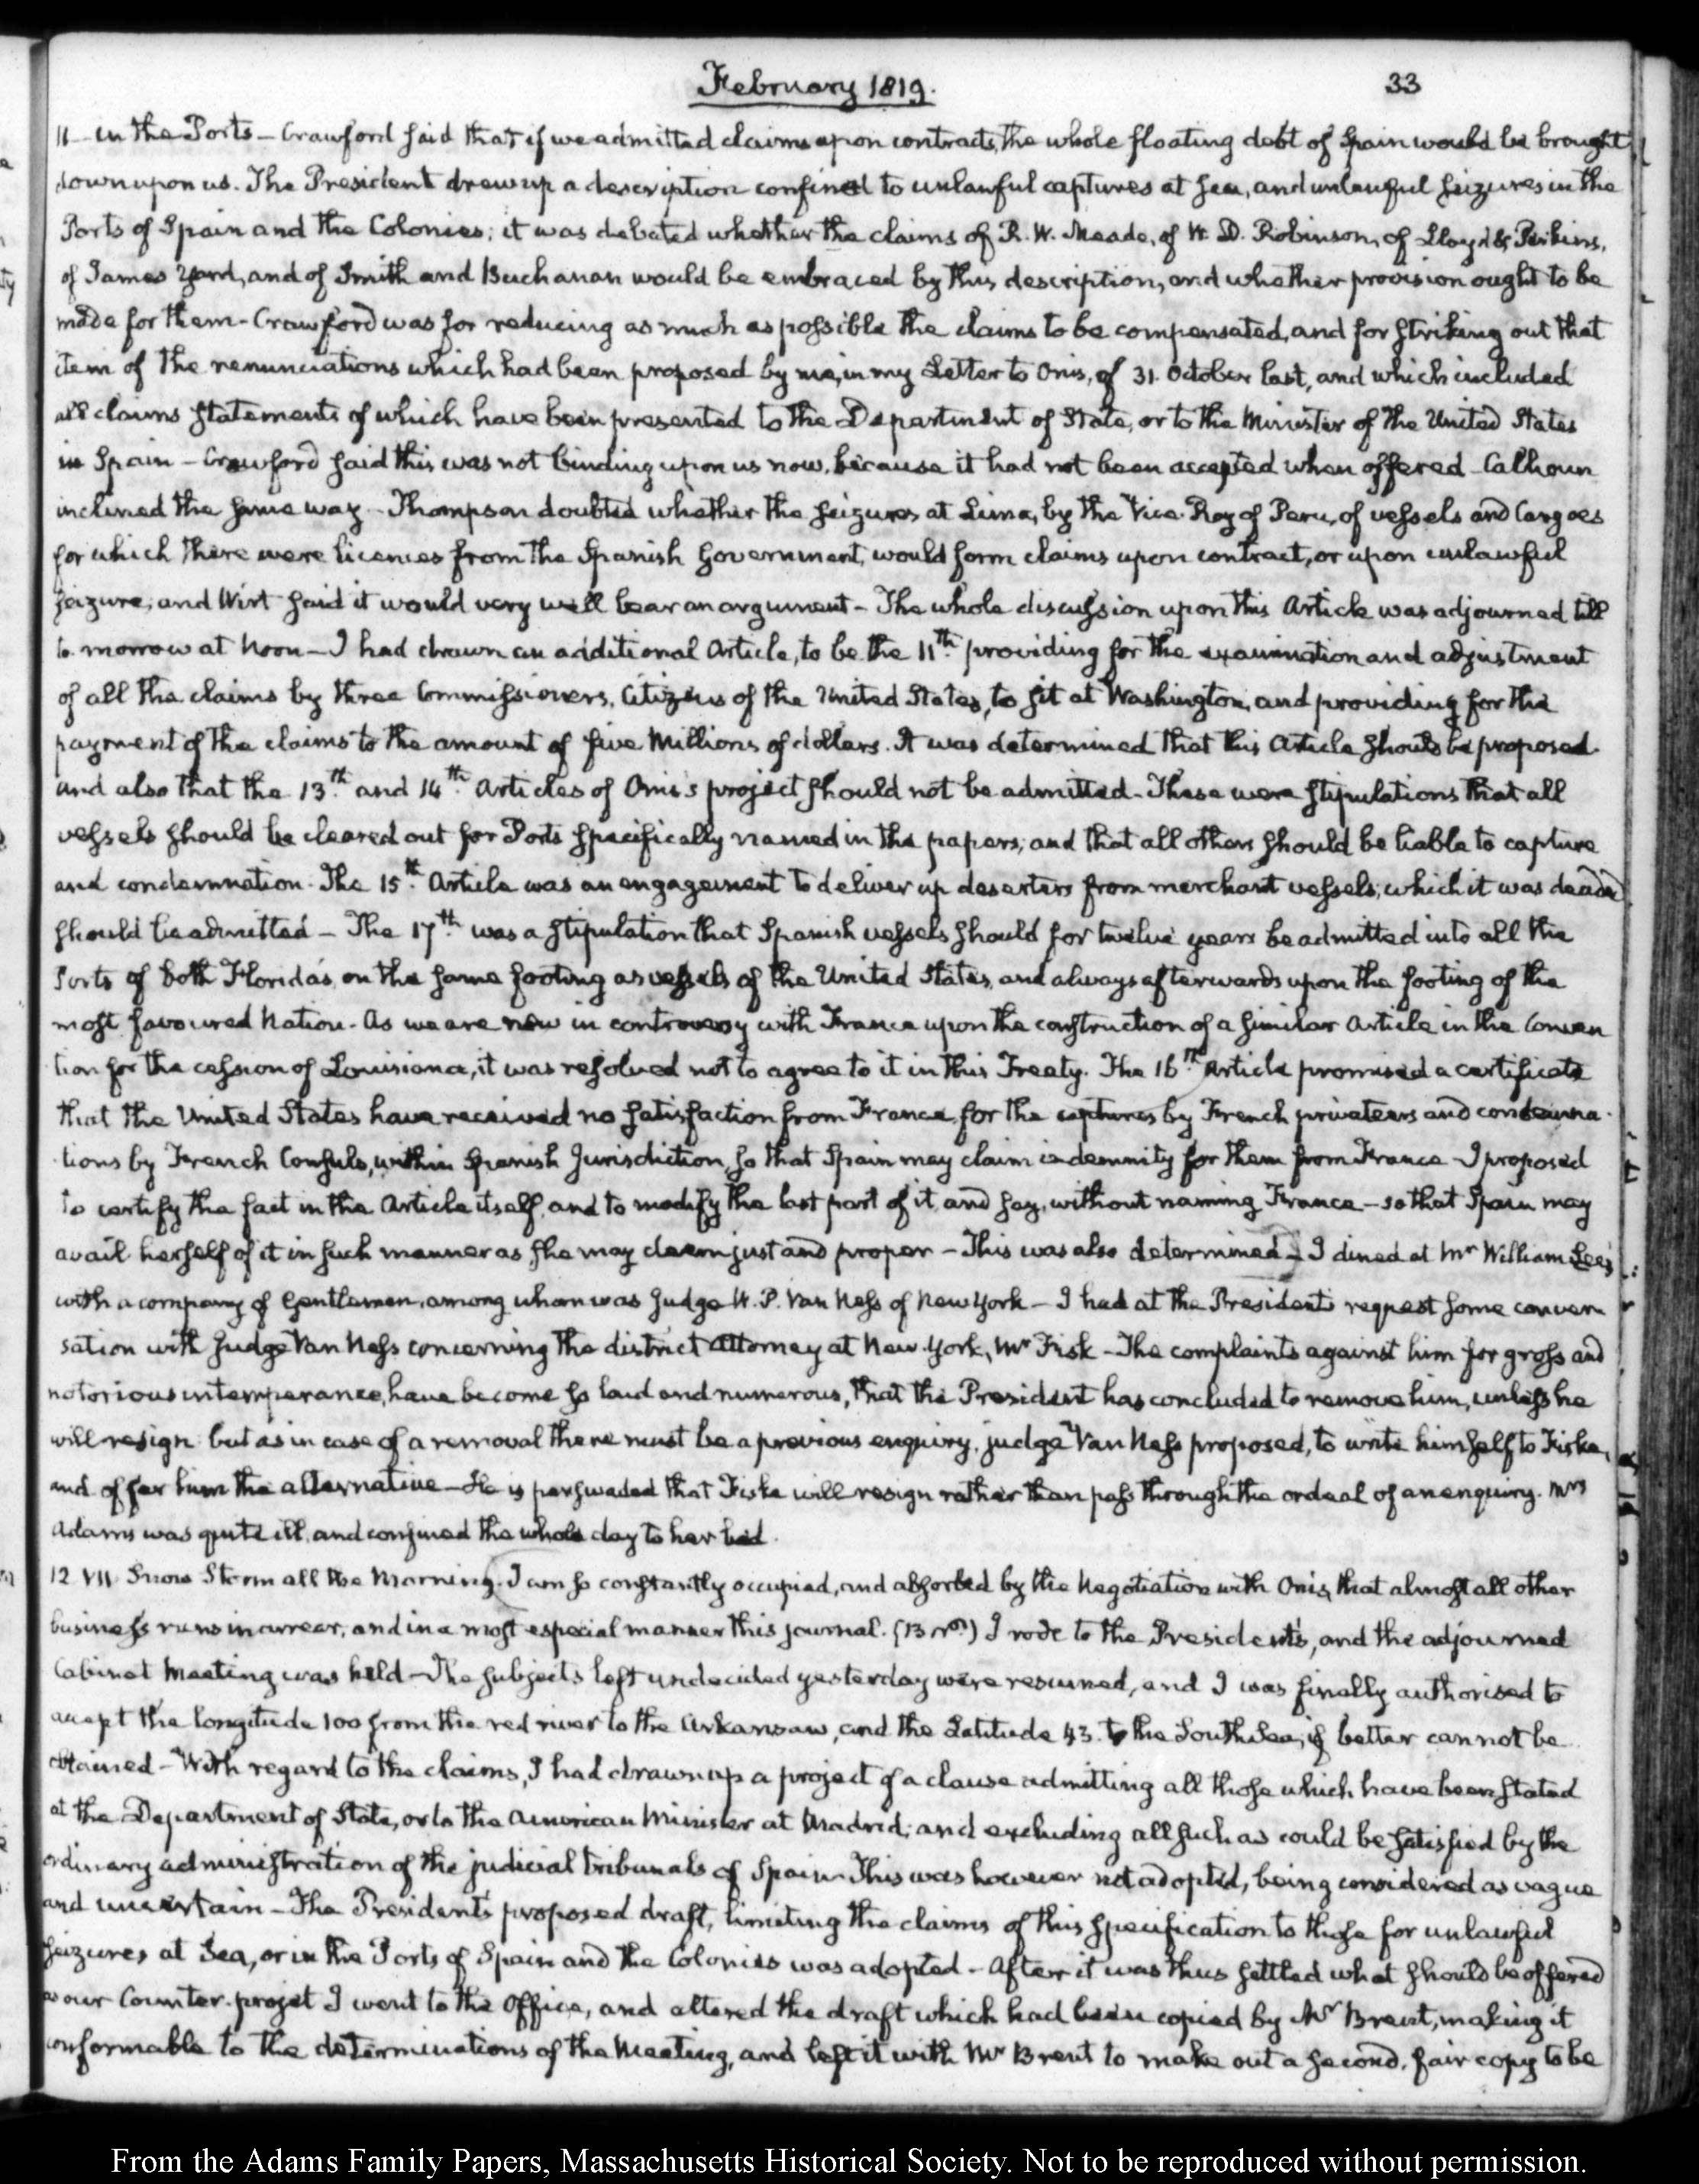 February 1819.
33
11 in the Ports — Crawford said that if we admitted claims upon contracts, the whole floating debt of Spain would be brought
down upon us. The President drew up a description confined to unlawful captures at Sea, and unlawful seizures in the
Ports of Spain and the Colonies; it was debated whether the claims of R. W. Meade, of W. D. Robinson, of Lloyd & Perkins,
of James Yard, and of Smith and Buchanan would be embraced by this description, and whether provision ought to be
made for them — Crawford was for reducing as much as possible the claims to be compensated, and for striking out that
item of the renunciations which had been proposed by me, in my Letter to Onis, of 31. October last, and which included
all claims statements of which have been presented to the Department of State, or to the Minister of the United States
in Spain — Crawford said this was not binding upon us now, because it had not been accepted when offered — Calhoun
inclined the same way — Thompson doubted whether the seizures at Lima, by the Vice-Roy of Peru, of vessels and Cargoes
for which there were licences from the Spanish Government, would form claims upon contract, or upon unlawful
seizure; and Wirt said it would very well bear an argument — The whole discussion upon this Article was adjourned till
to-morrow at Noon — I had drawn an additional Article, to be the 11th. providing for the examination and adjustment
of all the claims by three Commissioners, Citizens of the United States, to sit at Washington, and providing for the
payment of the claims to the amount of five Millions of dollars. It was determined that this Article should be proposed
and also that the 13th. and 14th. Articles of Onis's project should not be admitted — These were stipulations that all
vessels should be cleared out for Ports specifically named in the papers; and that all others should be liable to capture
and condemnation. The 15th. Article was an engagement to deliver up deserters from merchant vessels; which it was decided
should be admitted — The 17th. was a stipulation that Spanish vessels should for twelve years be admitted into all the
Ports of both Florida's, on the same footing as vessels of the United States, and always afterwards upon the footing of the
most favoured Nation. As we are now in controversy with France upon the construction of a similar Article in the Conven
tion for the cession of Louisiana, it was resolved not to agree to it in this Treaty. The 16th. Article promised a certificate
that the United States have received no satisfaction from France, for the captures by French privateers and condemna-
tions by French Consuls, within Spanish Jurisdiction, so that Spain may claim indemnity for them from France — I proposed
to certify the fact in the Article itself, and to modify the last part of it and say, without naming France — so that Spain may
avail herself of it in such manner as she may deem just and proper — This was also determined — I dined at Mr William Lee's
with a company of Gentlemen, among whom was Judge W. P. Van Ness of New York — I had at the President's request some conver
sation with Judge Van Ness concerning the district Attorney at New-York, Mr Fisk — The complaints against him for gross and
notorious intemperance, have become so loud and numerous, that the President has concluded to remove him, unless he
will resign but as in case of a removal there must be a previous enquiry, judge Van Ness proposed, to write himself to Fiske,
and offer him the alternative — He is perswaded that Fiske will resign rather than pass through the ordeal of an enquiry. Mrs
Adams was quite ill, and confined the whole day to her bed.
12 VII Snow Storm all the Morning. I am so constantly occupied, and absorbed by the Negotiation with Onis, that almost all other
business runs in arrear, and in a most especial manner this journal. I rode to the President's, and the adjourned
Cabinet Meeting was held — The subjects left undecided yesterday were resumed, and I was finally authorised to
accept the longitude 100 from the red river to the Arkansaw, and the Latitude 43. to the South Sea, if better cannot be
obtained — With regard to the claims, I had drawn up a project of a clause admitting all those which have been stated
at the Department of State, or to the American Minister at Madrid; and excluding all such as could be satisfied by the
ordinary administration of the judicial tribunals of Spain — This was however not adopted, being considered as vague
and uncertain — The President's proposed draft, limiting the claims of this specification to those for unlawful
seizures at Sea, or in the Ports of Spain and the Colonies was adopted — After it was thus settled what should be offered
as our Counter-projet I went to the Office, and altered the draft which had been copied by Mr Brent, making it
conformable to the determinations of the Meeting, and left it with Mr Brent to make out a second, fair copy to be
From the Adams Family Papers, Massachusetts Historical Society. Not to be reproduced without permission.